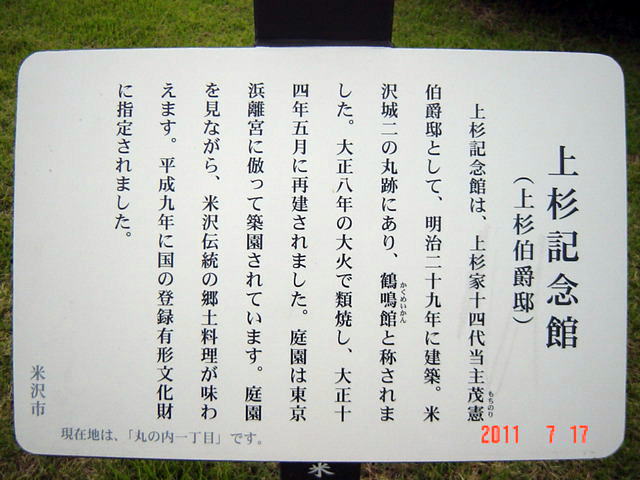 上杉記念館
（上杉伯爵邸）
上杉記念館は、上杉家十四代当主茂憲
もちのり
伯爵邸として、明治二十九年に建築。米
沢城二の丸跡にあり、鶴鳴館と称されま
かくめいかん
した。大正八年の大火で類焼し、大正十
四年五月に再建されました。庭園は東京
浜離宮に倣って築園されています。庭園
を見ながら、米沢伝統の郷土料理が味わ
えます。平成九年に国の登録有形文化財
に指定されました。
米沢市
現在地は、「丸の内一丁目」です。
2011 7 17
米